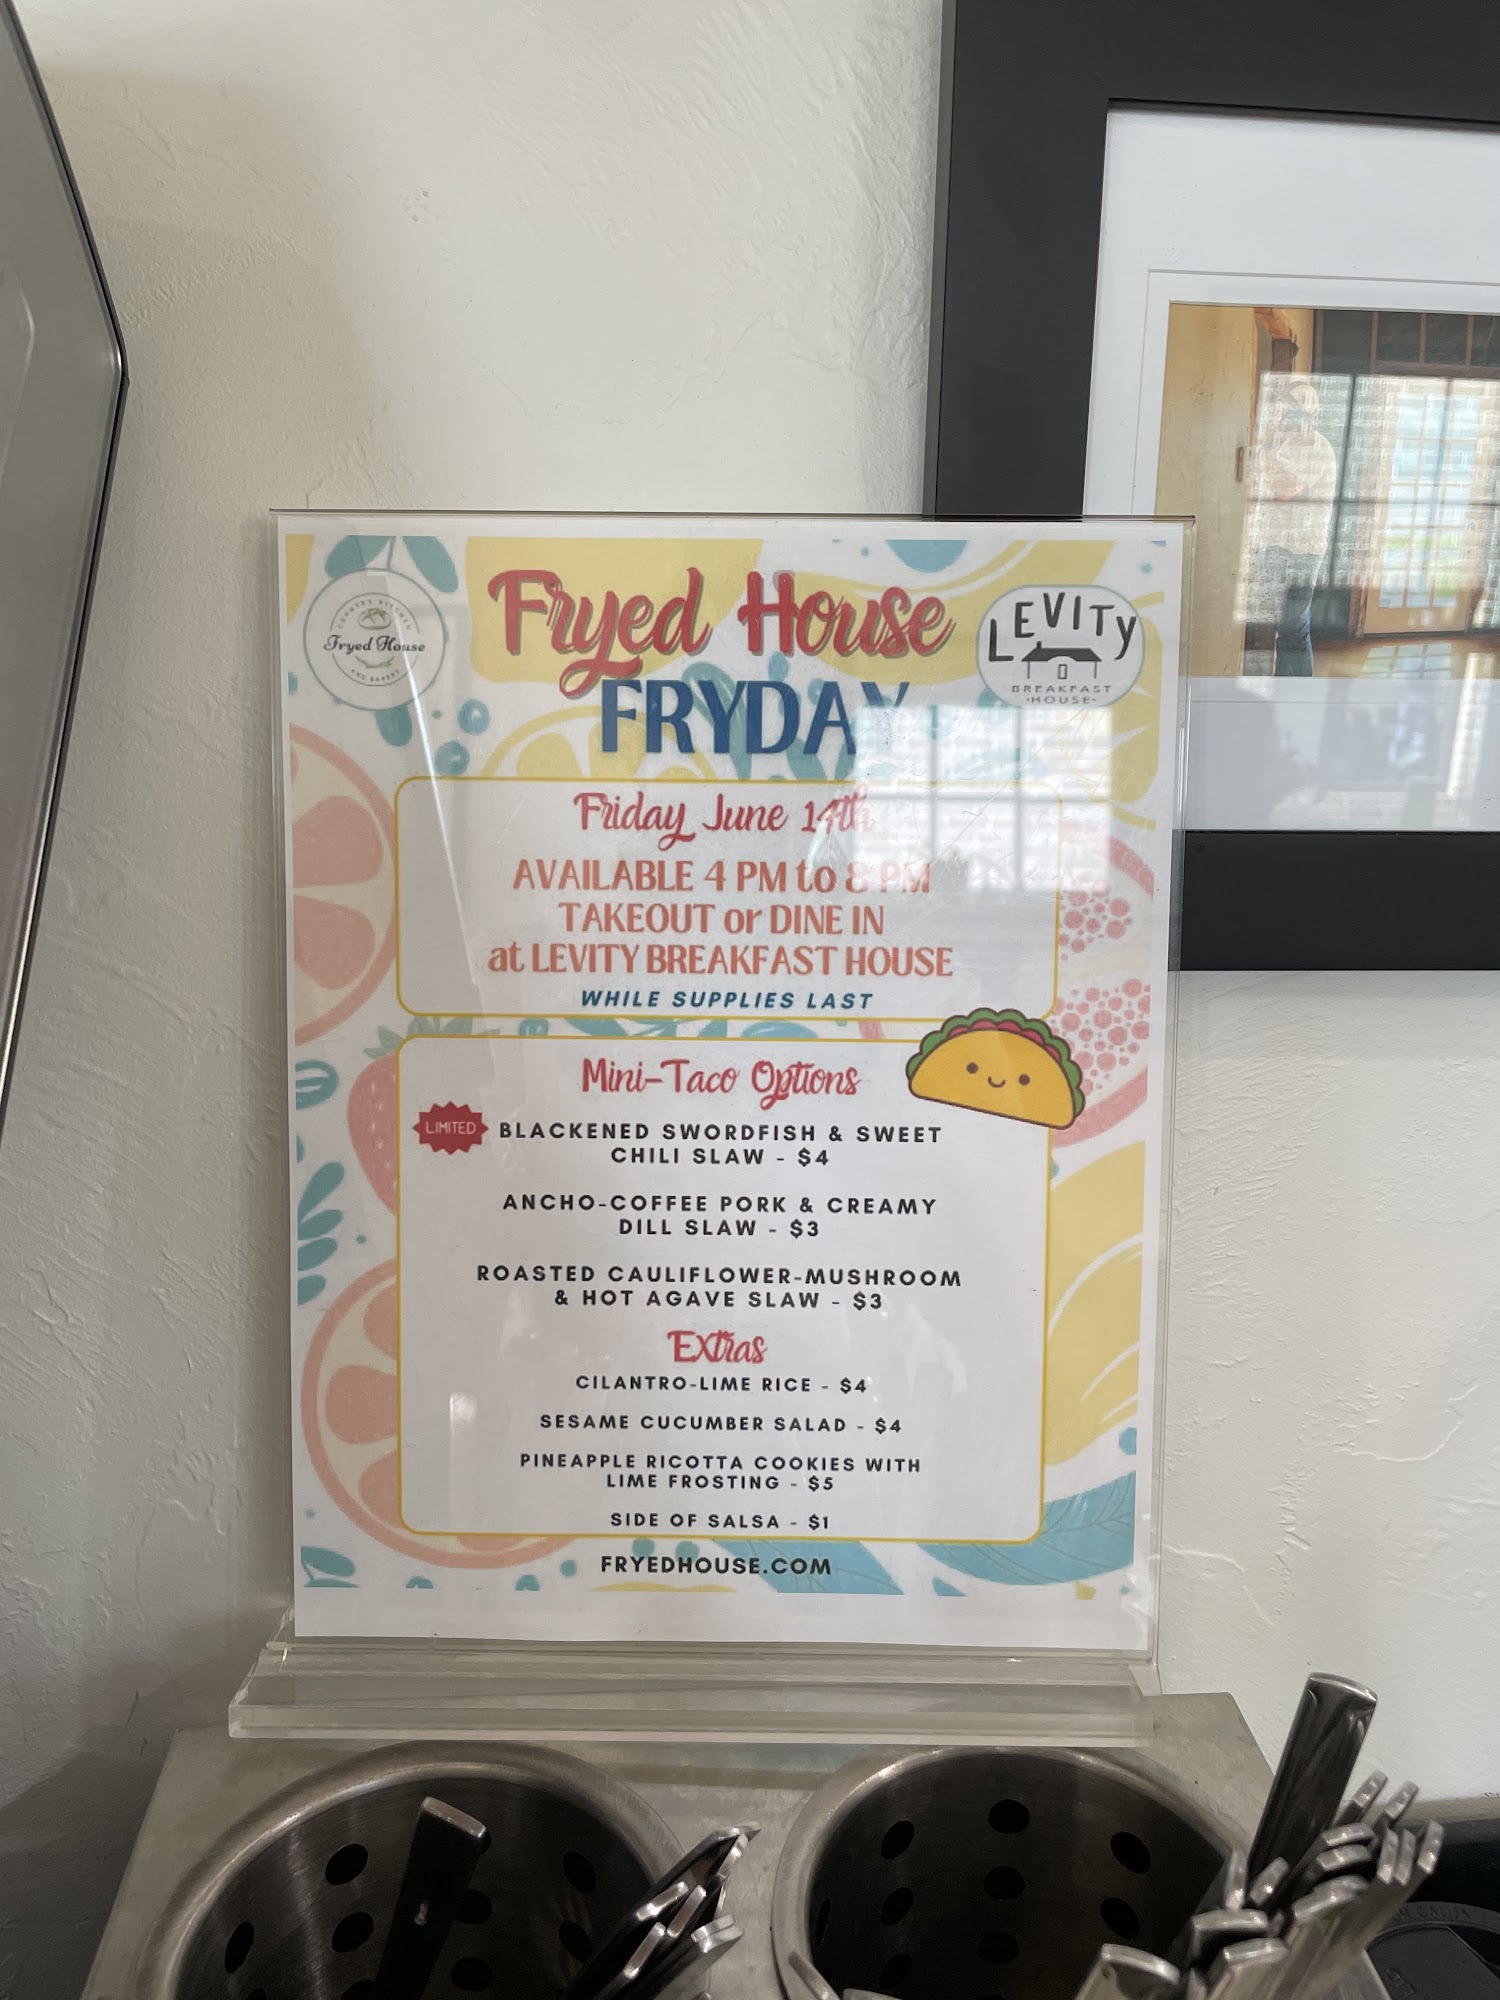 Fryed House
FRYDAY
COUNTRY KITCHEN
Fryed House
AND BAKERY
LEVITY
BREAKFAST
·HOUSE·
Friday June 14th
AVAILABLE 4 PM to 8 PM
TAKEOUT or DINE IN
at LEVITY BREAKFAST HOUSE
WHILE SUPPLIES LAST
Mini-Taco Options
LIMITED
BLACKENED SWORDFISH & SWEET
CHILI SLAW - $4
ANCHO-COFFEE PORK & CREAMY
DILL SLAW - $3
ROASTED CAULIFLOWER-MUSHROOM
& HOT AGAVE SLAW - $3
Extras
CILANTRO-LIME RICE - $4
SESAME CUCUMBER SALAD - $4
PINEAPPLE RICOTTA COOKIES WITH
LIME FROSTING - $5
SIDE OF SALSA - $1
FRYEDHOUSE.COM